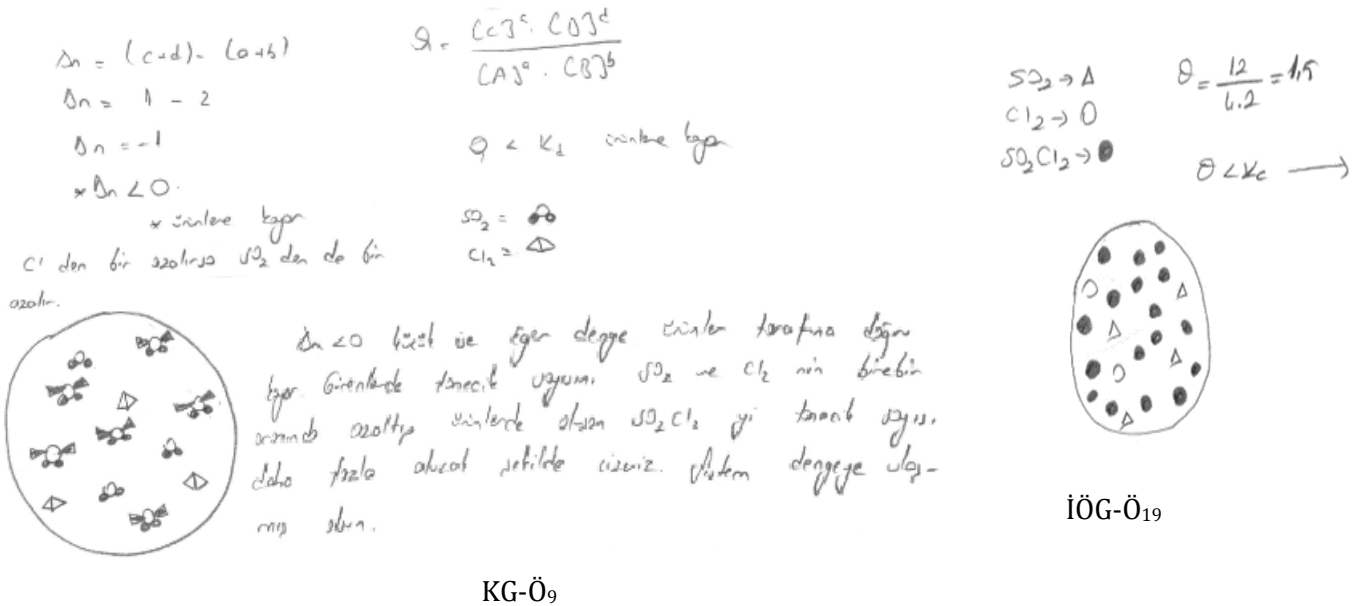 Δn = (c+d) - (a+b)
Δn = 1 - 2
Δn = -1
* Δn < 0
* ürünlere kayar
Cl den bir azalırsa SO₂ den de bir
azalır.
Q = [C]ᶜ · [D]ᵈ / [A]ᵃ · [B]ᵇ
Q < K ürünlere kayar
SO₂ =
Cl₂ =
Δn < 0 ise eğer denge ürünler tarafına doğru
kayar. Girenlerde tanecik sayısını SO₂ ve Cl₂ nin birebir
azaltıp ürünlerde olan SO₂Cl₂ yi tanecik sayısı
daha fazla olacak şekilde çizeriz. Sistem dengeye ulaş-
mış olur.
KG-Ö₉
SO₂ → Δ
Cl₂ → O
SO₂Cl₂ → ●
Q = 12 / 4.2 = 1,5
Q < Kc →
İÖG-Ö₁₉